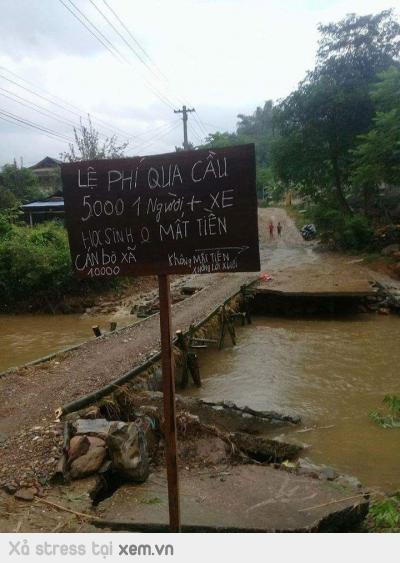 LỆ PHÍ QUA CẦU
5.000 1 Người + XE
HỌC SINH O MẤT TIỀN
CÁN BỘ XÃ
10000
KHÔNG MẤT TIỀN
XUỐNG LỘI SUỐI
Xả stress tại xem.vn